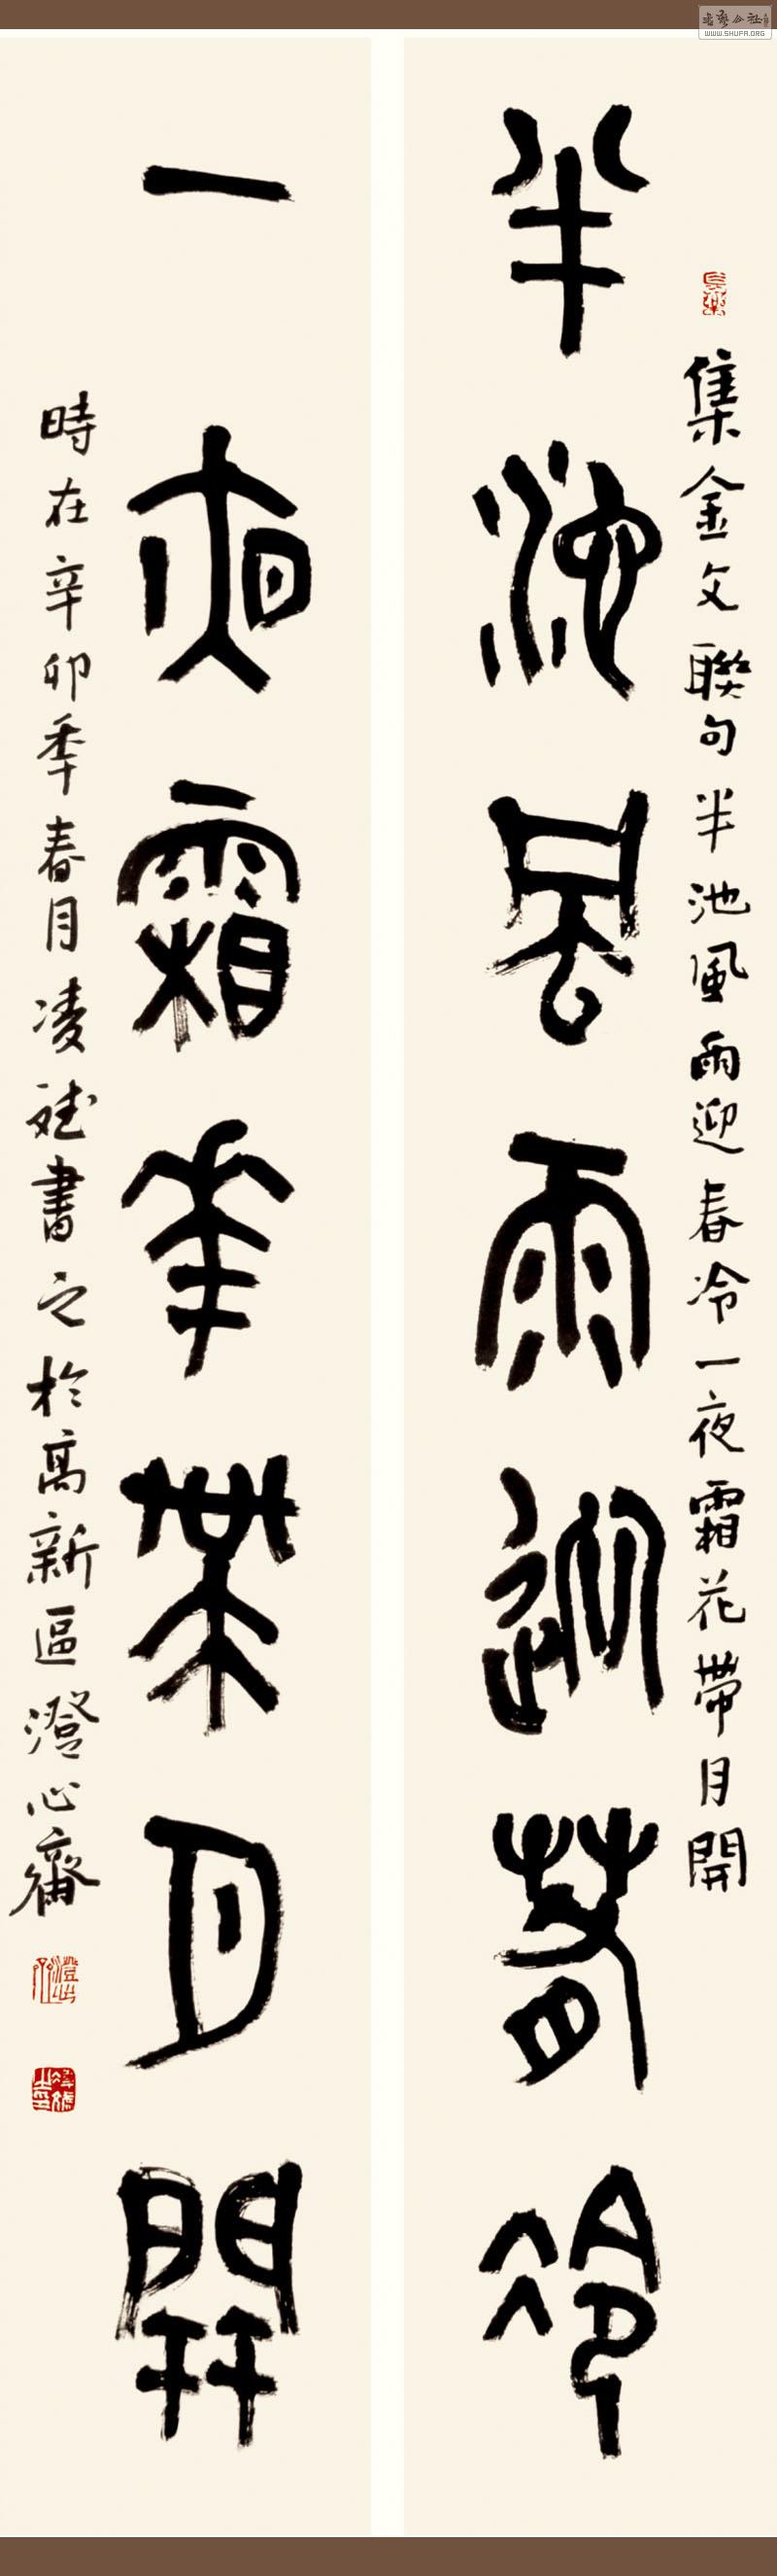 集金文聯句半池風雨迎春冷一夜霜花帶月開
半池風雨迎春冷
一夜霜華帶月開
時在辛卯季春月凌斌書之於高新區澄心齋
WWW.SHUFA.ORG